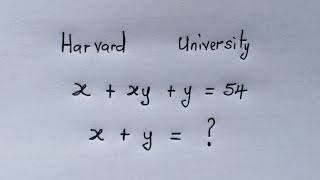 Harvard University
x + xy + y = 54
x + y = ?